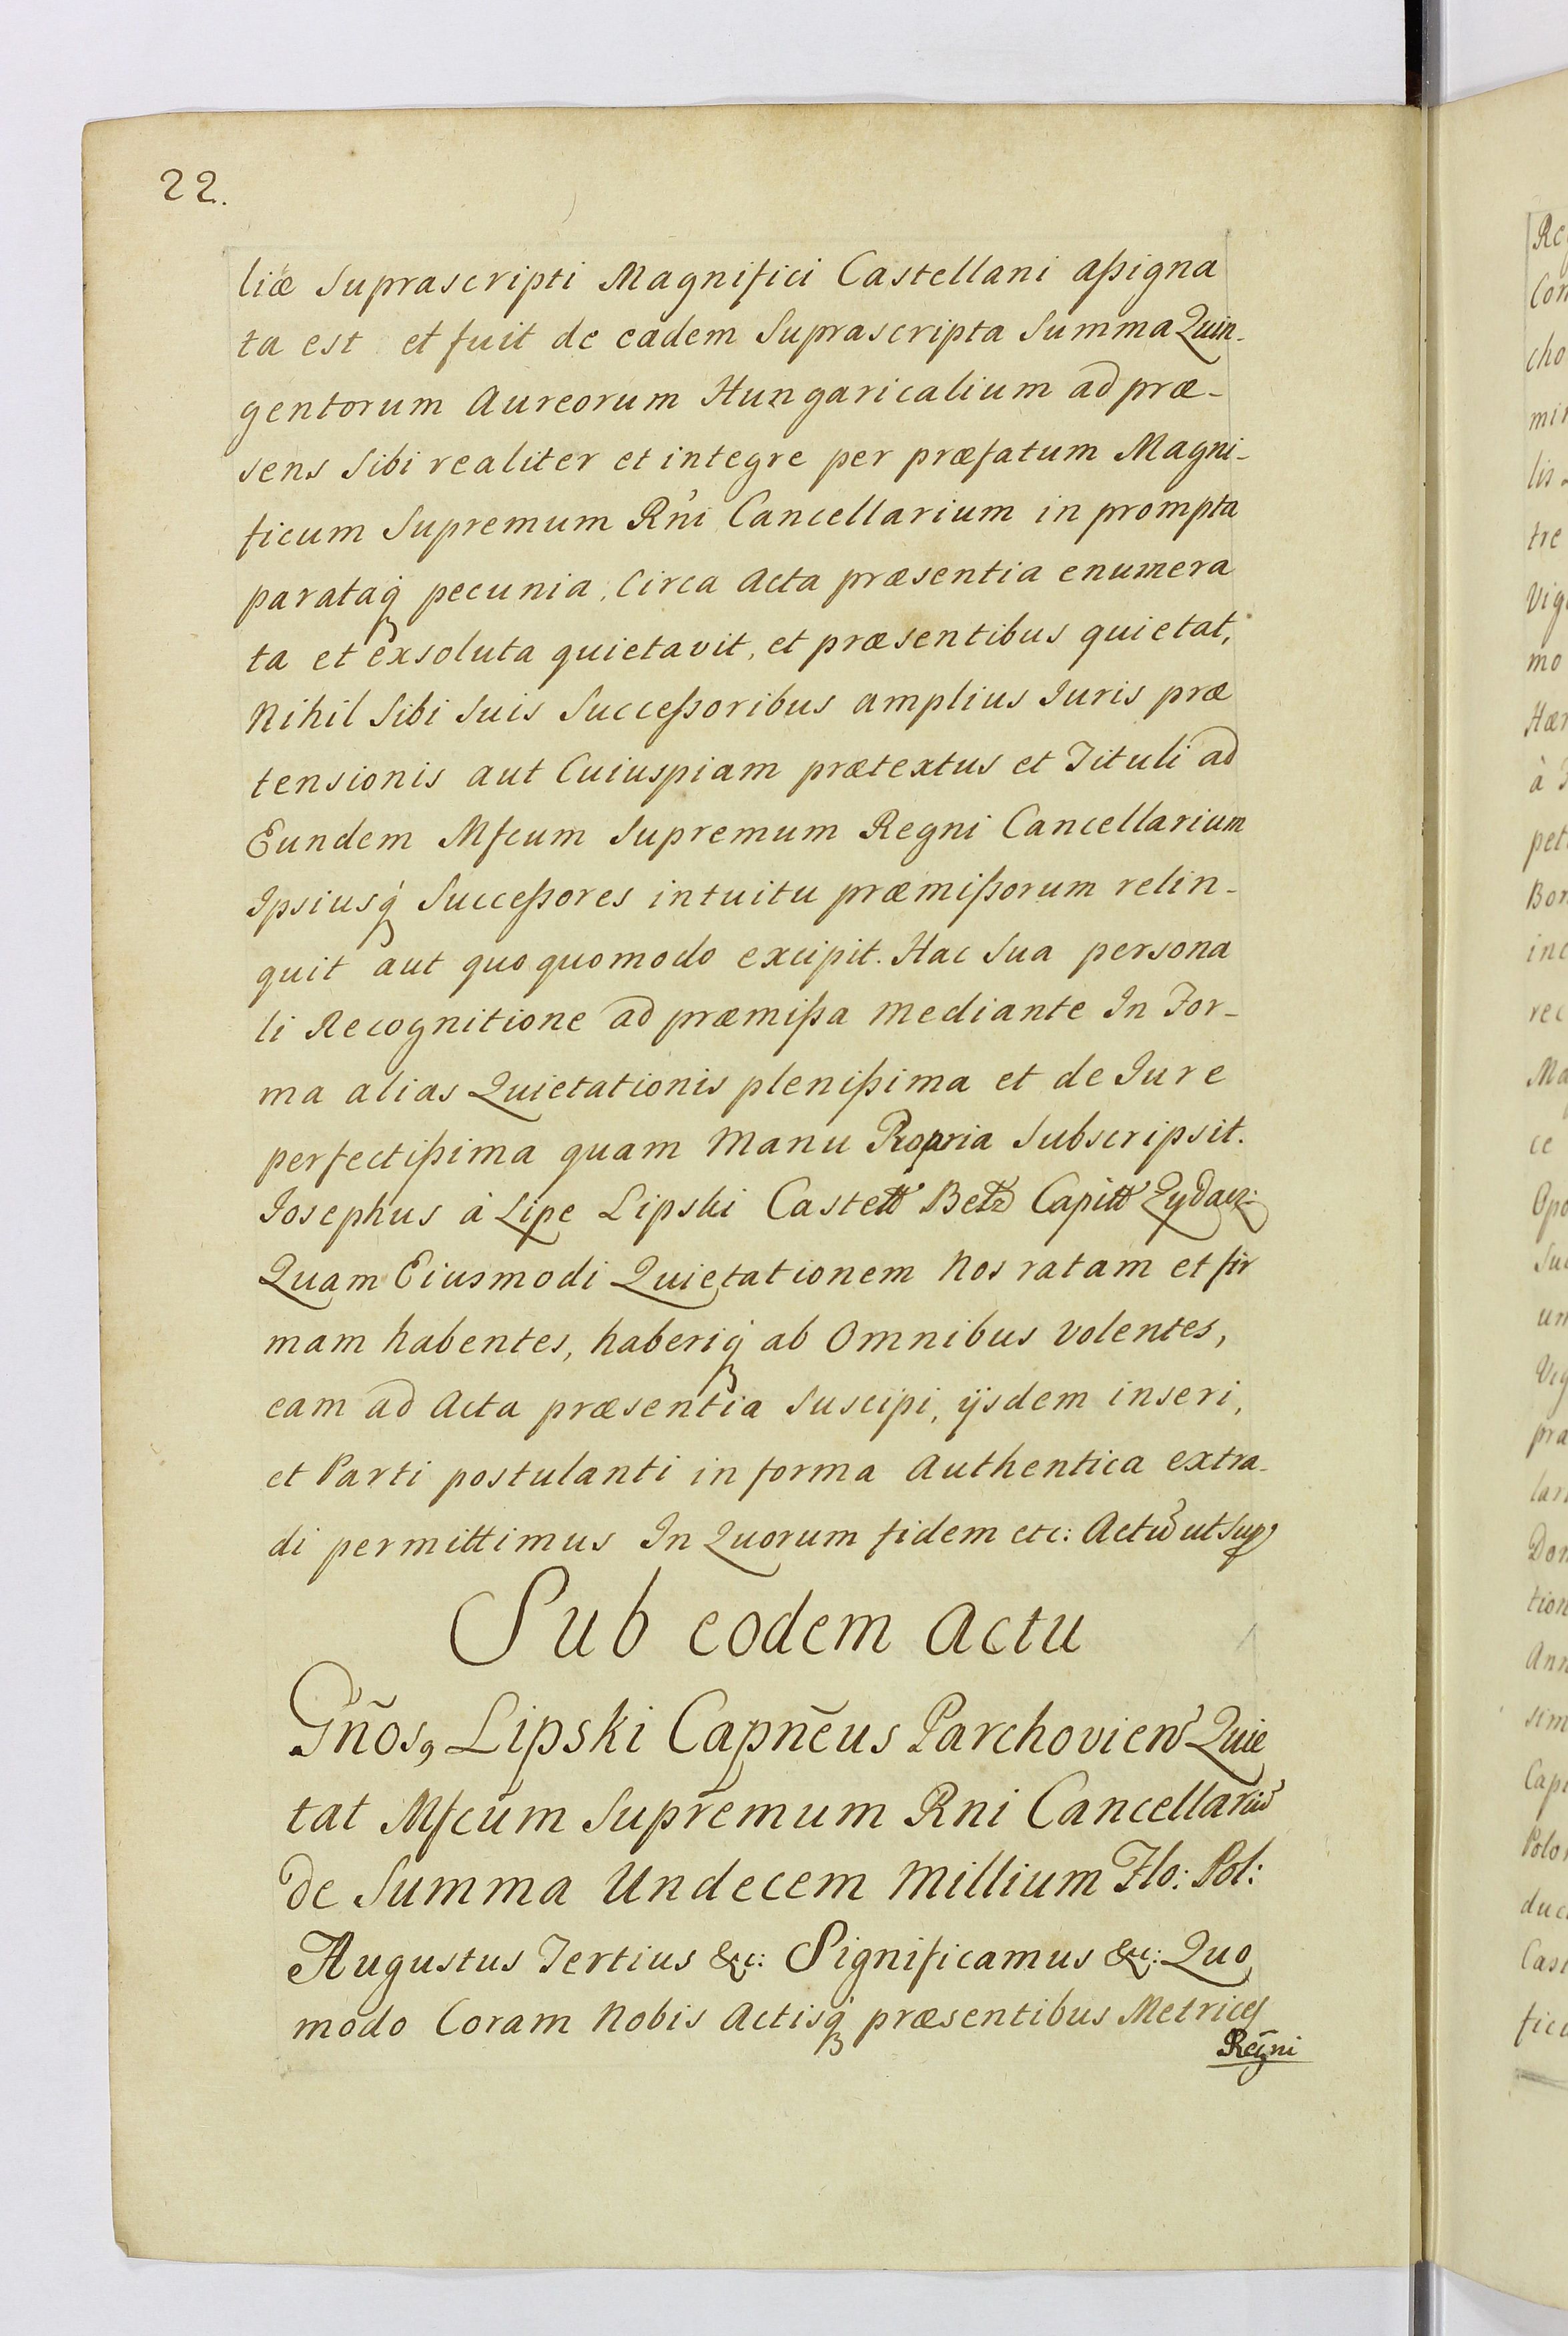 22.
liæ Suprascripti Magnifici Castellani aßigna
ta est et fuit de eadem Suprascripta Summa Quin-
gentorum Aureorum Hungaricalium ad præ-
sens Sibi realiter et integre per præfatum Magni-
ficum Supremum Rni Cancellarium in prompta
parataq pecunia, Circa Acta præsentia enumera
ta et exsoluta quietavit, et præsentibus quietat,
Nihil Sibi Suis Succeßoribus amplius Iuris præ
tensionis aut Cuiuspiam prætextus et Tituli ad
Eundem Mfcum Supremum Regni Cancellarium
Ipsiusq Succeßores intuitu præmißorum relin-
quit aut quoquomodo excipit. Hac Sua persona
li Recognitione ad præmißa mediante In For-
ma alias Quietationis plenißima et de Iure
perfectißima quam Manu Propria Subscripsit.
Iosephus à Lipe Lipski Castell Belz Capitt Zydacz:
Quam Eiusmodi Quietationem Nos ratam et fir
mam habentes, haberiq ab Omnibus volentes,
eam ad Acta præsentia Suscipi, ijsdem inseri,
et Parti postulanti in forma Authentica extra-
di permittimus In Quorum fidem etc: Actu ut Sup
Sub eodem Actu
Gños9 Lipski Capnēus Parchovien Quie
tat Mfcum Supremum Rni Cancellariu
de Summa Undecem Millium Flo: Pol:
Augustus Tertius &c: Significamus &c: Quo
modo Coram Nobis Actisq præsentibus Metrices
Regni
Re
Con
cho
lis
tre
mo
Hær
à
pet
Bon
inc
rec
Ma
ce
Opo
Suc
un
pra
lar
Don
tion
Ann
sim
Capi
Polo
duc
Cast
ficu